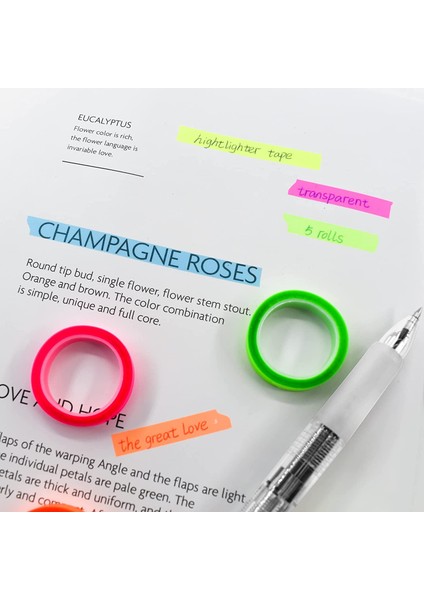 EUCALYPTUS
Flower color is rich,
the flower language is
invariable love.
hightlighter tape
transparent
5 rolls
CHAMPAGNE ROSES
Round tip bud, single flower, flower stem stout.
Orange and brown. The color combination
is simple, unique and full core.
OVE AND HOPE
the great Love
laps of the warping Angle and the flaps are light
e individual petals are pale green. The
etals are thick and uniform, and the
rly and